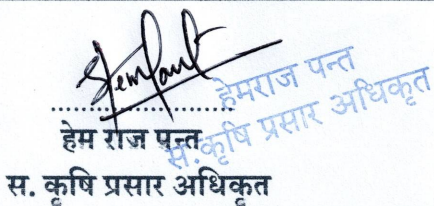 हेमराज पन्त
स. कृषि प्रसार अधिकृत
हेम राज पन्त
स. कृषि प्रसार अधिकृत